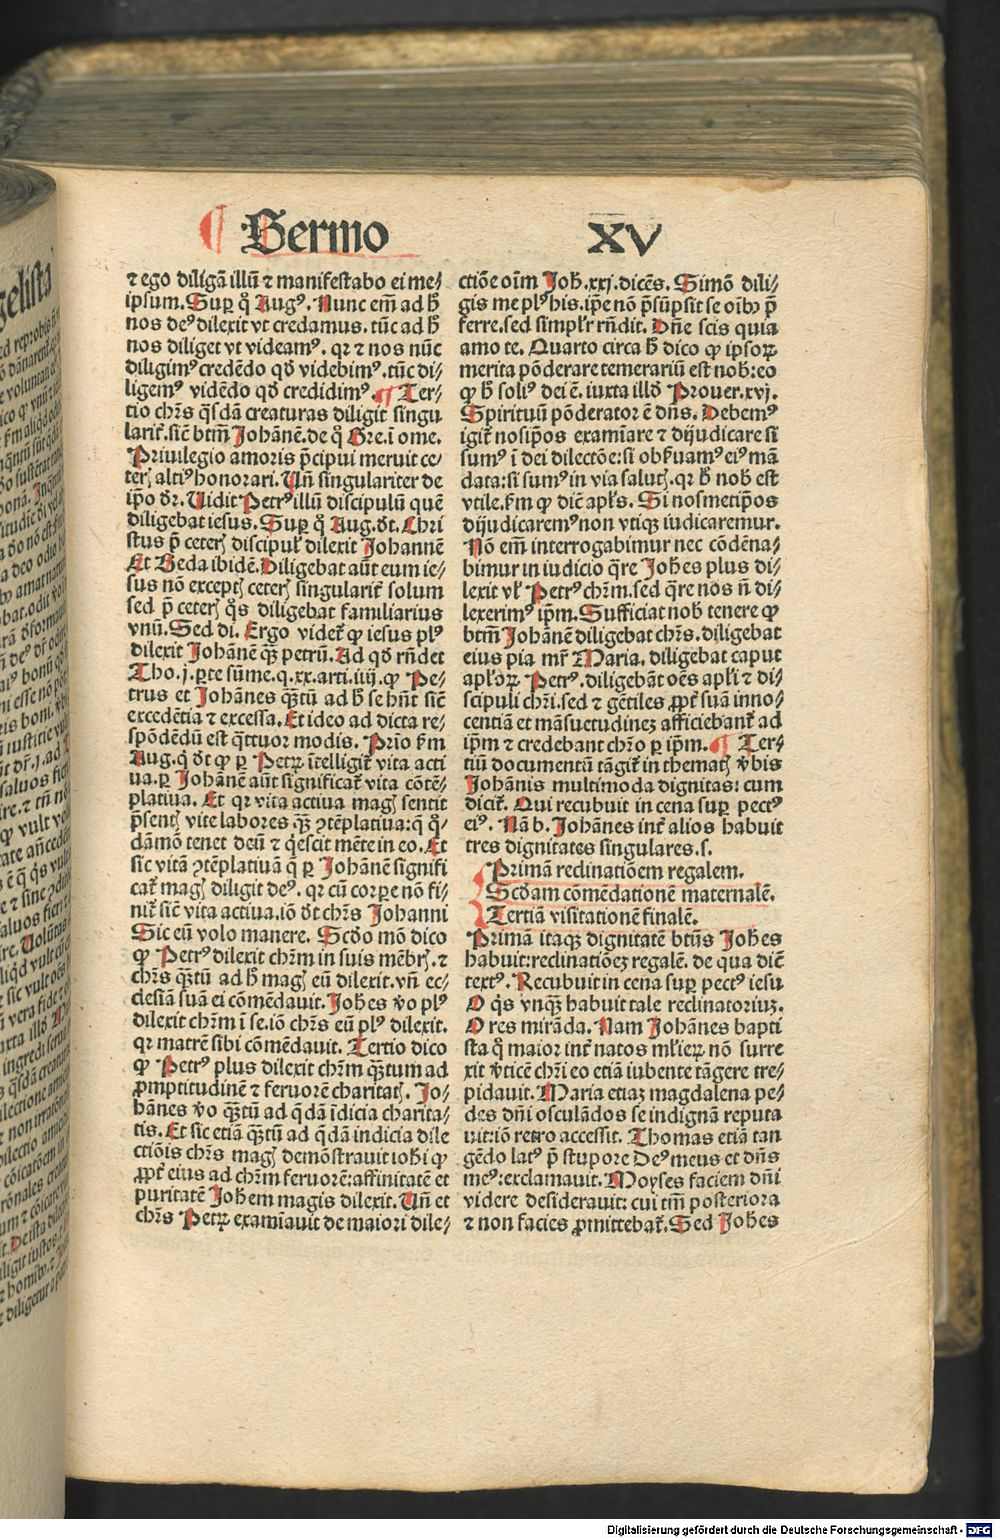 ¶ Sermo XV
⁊ ego diligā illū ⁊ manifestabo ei me⸗
ipsum. Suꝑ qͦ Augꝰ. Nunc em̄ ad hͦ
nos deꝰ dilexit vt credamus. tūc ad hͦ
nos diliget vt videamꝰ. qꝛ ⁊ nos nūc
diligimꝰ credēdo qď videbimꝰ. tūc di⸗
ligemꝰ vidēdo qď credidimꝰ. ¶ Ter⸗
tio chr̄s qͥsdā creaturas diligit singu
larit̄. sic̄ btm̄ Johānē. de qͦ Gre. ī ome.
Priuilegio amoris p̄cipui meruit ce⸗
terꝭ altiꝰ honorari. Un̄ singulariter de
ip̄o dr̄. Uidit Petrꝰ illū discipulū quē
diligebat iesus. Suꝑ qͦ Aug. dt̄. Chri
stus p̄ ceterꝭ discipul̄ dilexit Johannē
Et Beda ibidē. Diligebat aūt eum ie⸗
sus nō exceptꝭ ceterꝭ singularit̄ solum
sed p̄ ceterꝭ qͦs diligebat familiarius
vnū. Sed di. Ergo videt̄ ꝙ iesus plꝰ
dilexit Johānē qꝫ̄ petrū. Ad qď rn̄det
Tho. j. ꝑte sūme. q. xx. arti. iiij. ꝙ Pe⸗
trus et Johānes qꝫ̄tū ad hͦ se hn̄t sic̄
excedētia ⁊ excessa. Et ideo ad dicta re⸗
spōdēdū est qͣttuor modis. Prīo ẜm
Aug. qͥ dt̄ ꝙ ꝑ Petꝝ ītelligit̄ vita acti
ua. ꝑ Johānē aūt significat̄ vita cōtē⸗
platiua. Et qꝛ vita actiua magꝭ sentit
p̄sentꝭ vite labores qꝫ̄ ꝯtēplatiua: q̄ qͦ⸗
dāmō tenet deū ⁊ qͥescit mēte in eo. Et
sic vitā ꝯtēplatiuā q̄ ꝑ Johānē signifi
cat̄ magꝭ diligit deꝰ. qꝛ cū corꝑe nō fi⸗
nit̄ sic̄ vita actiua. iō dt̄ chr̄s Johanni
Sic eū volo manere. Scďo mō dico
ꝙ Petrꝰ dilexit chr̄m in suis mēbrꝭ. ⁊
chr̄s qꝫ̄tū ad hͦ magꝭ eū dilexit. vn̄ ec⸗
clesiā suā ei cōmēdauit. Joh̄es v̄o plꝰ
dilexit chr̄m ī se. iō chr̄s eū plꝰ dilexit.
qꝛ matrē sibi cōmēdauit. Tertio dico
ꝙ Petrꝰ plus dilexit chr̄m qꝫ̄tum ad
ꝓmptitudinē ⁊ feruorē charitatꝭ. Jo⸗
hānes v̄o qꝫ̄tū ad qͥdā īdicia charita⸗
tis. Et sic etiā qꝫ̄tū ad qͥdā indicia dile
ctiōis chr̄s magꝭ demōstrauit iohi ꝙ
ꝓpt̄ eius ad chr̄m feruorē: affinitatē et
puritatē Joh̄em magis dilexit. Un̄ et
chr̄s Petꝝ examīauit de maiori dile⸗
ctiōe oīm Joh̄. xxj. dicēs. Simō dili⸗
gis me plꝰ his. ip̄e nō p̄supsit se oībꝰ p̄
ferre. sed simpl̄r rn̄dit. Dn̄e scis quia
amo te. Quarto circa hͦ dico ꝙ ipsoꝝ
merita pōderare temerariū est nob̄: eo
ꝙ hͦ soliꝰ dei ē. iuxta illď Prouer. xvj.
Spirituū pōderator ē dn̄s. Debemꝰ
igit̄ nosip̄os examīare ⁊ dijudicare si
sumꝰ ī dei dilectōe: si obẜuamꝰ eiꝰ mā
data: si sumꝰ in via salutꝭ. qꝛ hͦ nob̄ est
vtile. ẜm ꝙ dic̄ apl̄s. Si nosmetip̄os
dijudicaremꝰ non vtiqꝫ iudicaremur.
Nō em̄ interrogabimur nec cōdēna⸗
bimur in iudicio qͣre Joh̄es plus di⸗
lexit vl̄ Petrꝰ chr̄m. sed qͣre nos n̄ di⸗
lexerimꝰ ip̄m. Sufficiat nob̄ tenere ꝙ
btm̄ Johānē diligebat chr̄s. diligebat
eius pia mr̄ Maria. diligebat caput
apl̄oꝝ Petrꝰ. diligebāt oēs apl̄i ⁊ di⸗
scipuli chr̄i. sed ⁊ gētiles ꝓpt̄ suā inno⸗
centiā et māsuetudinez afficiebant̄ ad
ip̄m ⁊ credebant chr̄o ꝑ ip̄m. ¶ Ter⸗
tiū documentū tāgit̄ in thematꝭ v̄bis
Johānis multimoda dignitas: cum
dicit̄. Qui recubuit in cena suꝑ pectꝰ
eiꝰ. Nā b. Johānes int̄ alios habuit
tres dignitates singulares. s.
Primā reclinatiōem regalem.
Scďam cōmēdationē maternalē.
Tertiā visitationē finalē.
Primā itaqꝫ dignitatē btūs Joh̄es
habuit: reclinatiōez regalē. de qua dic̄
textꝰ. Recubuit in cena suꝑ pectꝰ iesu
O qͥs vnqꝫ̄ habuit tale reclinatoriuz.
O res mirāda. Nam Johānes bapti
sta qͦ maior int̄ natos ml̄ieꝝ nō surre
xit v̄ticē chr̄i eo etiā iubente tāgere tre⸗
pidauit. Maria etiaz magdalena pe⸗
des dn̄i osculādos se indignā reputa
uit: iō retro accessit. Thomas etiā tan
gēdo latꝰ p̄ stupore Deꝰ meus et dn̄s
meꝰ: exclamauit. Moyses faciem dn̄i
videre desiderauit: cui tm̄ posteriora
⁊ non facies ꝓmittebat̄. Sed Joh̄es
Digitalisierung gefördert durch die Deutsche Forschungsgemeinschaft - DFG